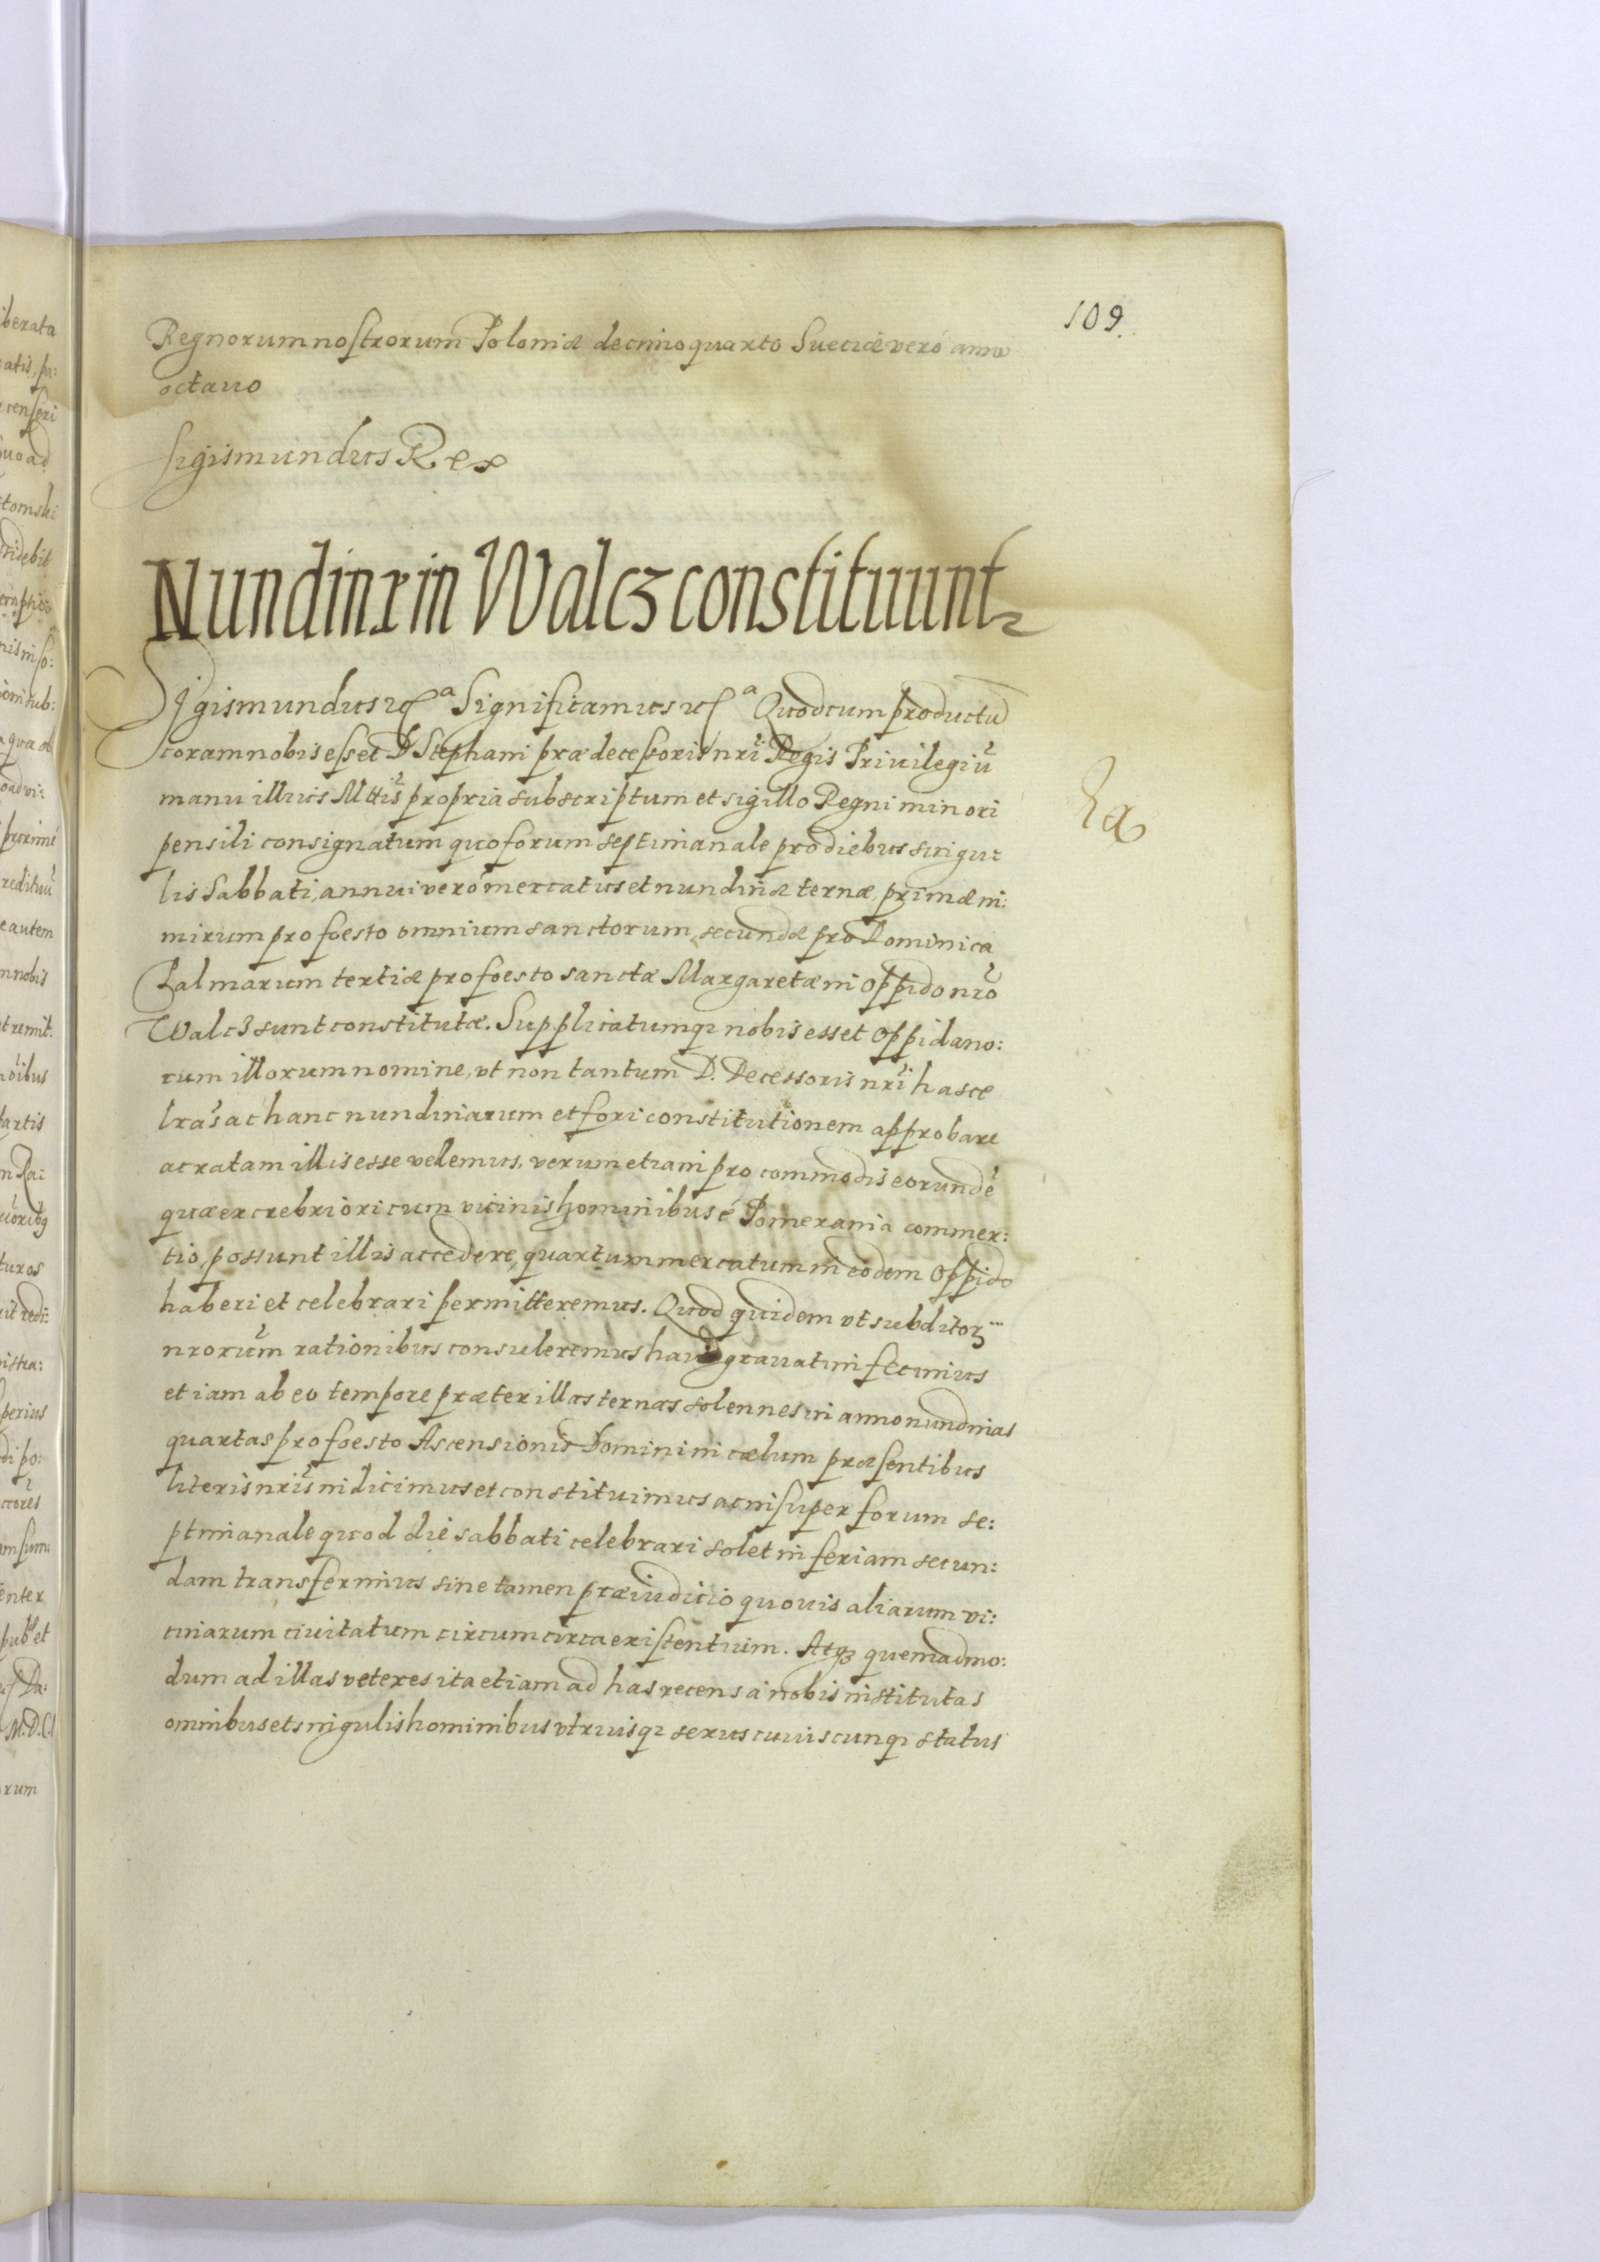 109.
Regnorum nostrorum Poloniæ decimo quarto Sueciæ vero anno
octauo
Sigismundus Rex
Nundinæ in Walcz constituunt
Sigismundus Significamus Quod cum productũ
coram nobis esset D Stephani prædecessoris nri Regis Priuilegiũ
manu illius Mttis propria subscriptum et sigillo Regni minori
pensili consignatum quo forum septimanale pro diebus singu:
lis Sabbati, annui vero mercatus et nundinæ ternæ, primæ ni:
mirum pro foesto omnium sanctorum, secundæ pro Dominica
Palmarum tertiæ pro foesto sanctæ Margaretæ in oppido nro
Walcz sunt constitutæ. Supplicatumq; nobis esset oppidano:
rum illorum nomine, vt non tantum D. Decessoris nri hasce
lras ac hanc nundinarum et fori constitutionem approbare
ac ratam illis esse velemus, verum etiam pro commodis eorundẽ
quæ ex crebriori cum vicinis hominibus é Pomerania commer:
tio, possunt illis accedere, quartum mercatum in eodem oppido
haberi et celebrari permitteremus. Quod quidem vt subditorꝫ
nrorum rationibus consuleremus haud grauatim fecimus
et iam ab eo tempore præter illas ternas solennes in anno nundinas
quartas pro foesto Ascensionis Domini in cælum præsentibus
literis nris indicimus et constituimus ac insuper forum se:
ptimanale quod die sabbati celebrari solet in feriam secun:
dam transferimus sine tamen præiudicio quouis aliarum vi:
cinarum ciuitatum circumcirca existentium. Atqꝫ quemadmo:
dum ad illas veteres ita etiam ad has recens à nobis institutas
omnibus et singulis hominibus vtriusq; sexus cuiuscunq; status